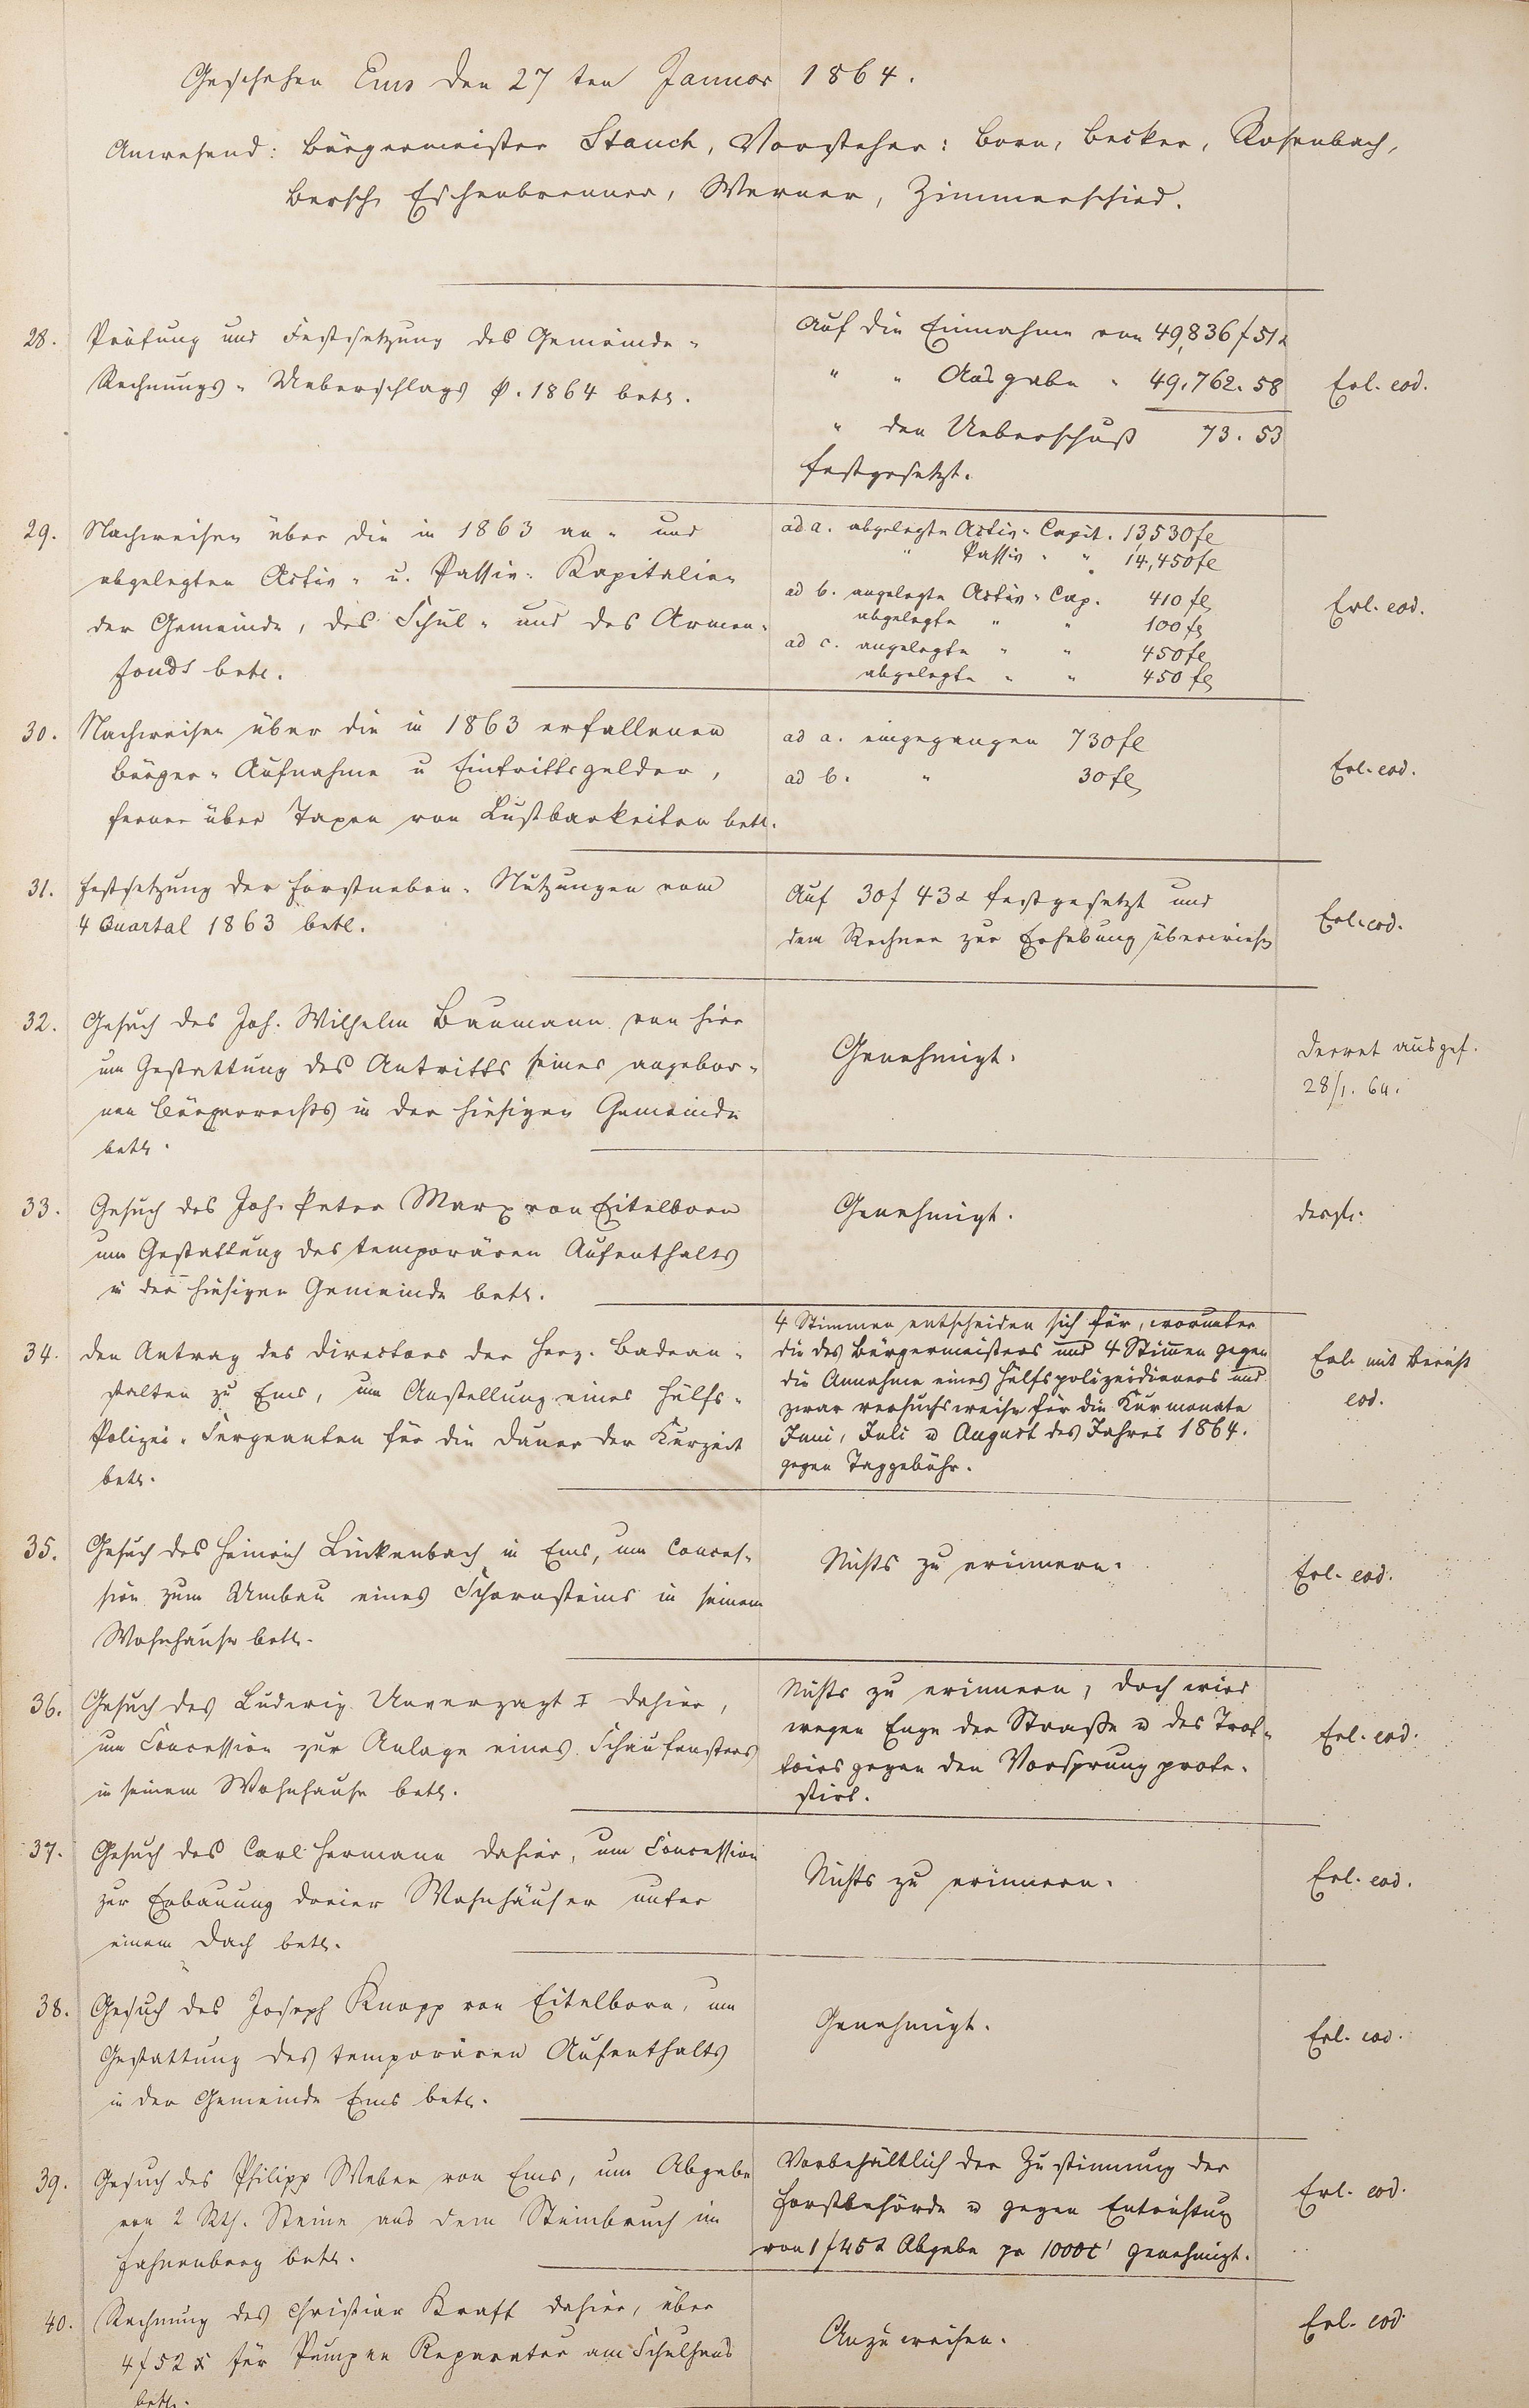 Geschehen Ems den 27 ten Januar 1864.
Anwesend: Bürgermeister Stauch, Vorsteher: Born, Becker, Rosenbach,
Bersch, Eschenbrenner, Werner, Zimmerschied.
28. Prüfung und Festsetzung des Gemeinde-
Rechnungs-Ueberschlags p. 1864 betr.
Auf die Einnahme von 49,836 f 51 x
" " Ausgabe " 49,762. 58
" den Ueberschuß 73. 53
festgesetzt.
Erl. eod.
29. Nachweisen über die in 1863 an- und
abgelegten Activ- u. Passiv-Kapitalien
der Gemeinde, des Schul- und des Armen-
fonds betr.
ad a. abgelegte Activ-Capit. 13530 fl
" Passiv " " 14,450 fl
ad b. angelegte Activ-Cap. 410 fl
abgelegte " " 100 fl
ad c. angelegte " " 450 fl
abgelegte " " 450 fl
Erl. eod.
30. Nachweisen über die in 1863 erfallenen
Bürger-Aufnahme u Eintrittsgelder,
ferner über Taxen von Lustbarkeiten betr.
ad a. eingegangen 730 fl
ad b. " 30 fl
Erl. eod.
31. Festsetzung der Forstneben-Nutzungen vom
4 Quartal 1863 betr.
Auf 30 f 43 x festgesetzt und
dem Rechner zur Erhebung überwiesen
Erl. eod.
32. Gesuch des Joh. Wilhelm Baumann von hier
um Gestattung des Antritts seines angebor-
nen Bürgerrechts in der hiesigen Gemeinde
betr.
Genehmigt.
Decret ausgef.
28/1. 64.
33. Gesuch des Joh. Peter Marx von Eitelborn
um Gestattung des temporären Aufenthalts
in der hiesigen Gemeinde betr.
Genehmigt.
desgl.
34. Den Antrag des Directors der Herz. Badean-
stalten zu Ems, um Anstellung eines Hülfs-
Polizei-Sergeanten für die Dauer der Kurzeit
betr.
4 Stimmen entscheiden sich für, worunter
die des Bürgermeisters und 4 Stimmen gegen
die Annahme eines Hülfspolizeidieners und
zwar versuchsweise für die Kurmonate
Juni, Juli u August des Jahres 1864.
gegen Taggebühr.
Erl. mit Bericht
eod.
35. Gesuch des Heinrich Linkenbach in Ems, um Conces-
sion zum Umbau eines Schornsteins in seinem
Wohnhause betr.
Nichts zu erinnern.
Erl. eod.
36. Gesuch des Ludwig Unverzagt I dahier,
um Concession zur Anlage eines Schaufensters
in seinem Wohnhause betr.
Nichts zu erinnern, doch wird
wegen Enge der Straße u des Trot-
toirs gegen den Vorsprung prote-
stirt.
Erl. eod.
37. Gesuch des Carl Hermann dahier, um Concession
zur Erbauung dreier Wohnhäuser unter
einem Dach betr.
Nichts zu erinnern.
Erl. eod.
38. Gesuch des Joseph Knopp von Eitelborn, um
Gestattung des temporären Aufenthalts
in der Gemeinde Ems betr.
Genehmigt.
Erl. eod.
39. Gesuch des Philipp Weber von Ems, um Abgabe
von 2 Rth. Steine aus dem Steinbruch im
Fahnenberg betr.
Vorbehältlich der Zustimmung der
Forstbehörde u gegen Entrichtung
von 1 f 45 x Abgabe pr 1000 c' genehmigt.
Erl. eod.
40. Rechnung des Christian Kraft dahier, über
4 f 52 x für Pumpen Reparatur am Schulhaus
betr.
Anzuweisen.
Erl. eod